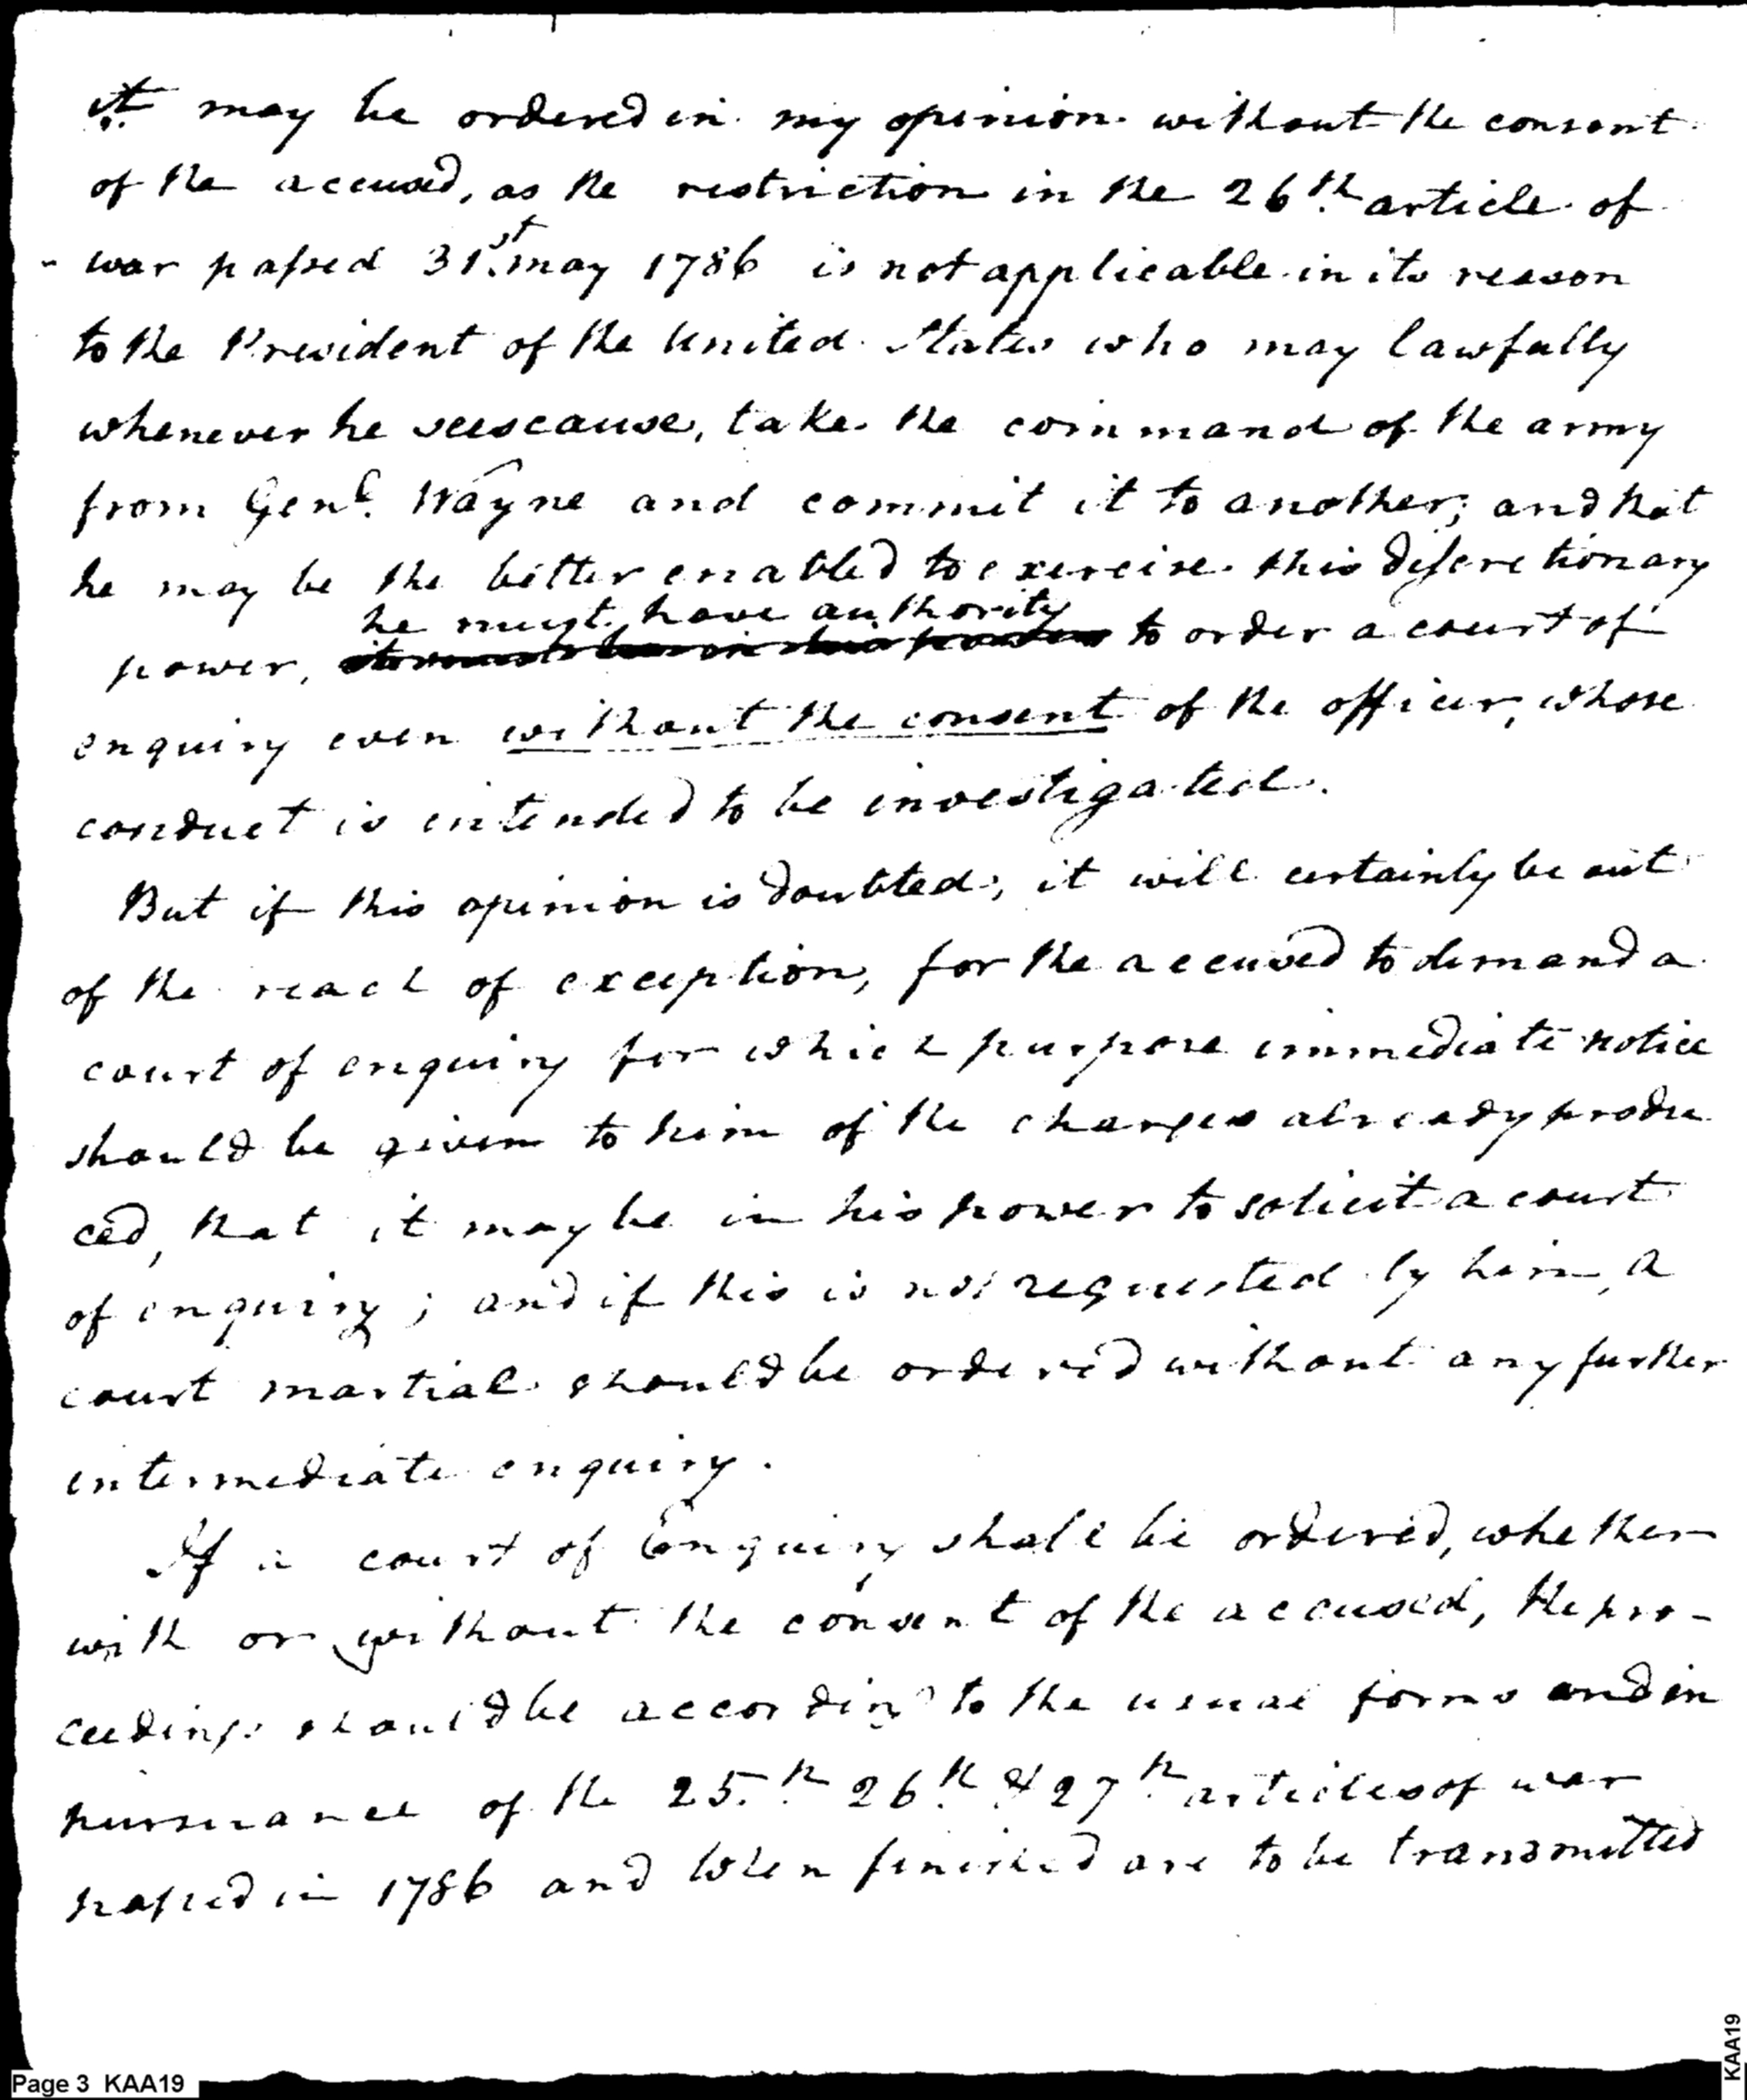 it may be ordered in my opinion without the consent
of the accused, as the restriction in the 26th. article of
war passed 31st. may 1786 is not applicable in its reason
to the President of the United States who may lawfully
whenever he sees cause, take the command of the army
from Genl. Wayne and commit it to another; and that
he may be the better enabled to exercise this discretionary
he must have authority
power, it must be in his power to order a court of
enquiry even without the consent of the officer, whose
conduct is intended to be investigated.
But if this opinion is doubted, it will certainly be out
of the reach of exception, for the accused to demand a
court of enquiry for which purpose immediate notice
should be given to him of the charges already produ
ced, that it may be in his power to solicit a court
of enquiry; and if this is not requested by him, a
court martial should be ordered without any further
intermediate enquiry.
If a court of Enquiry shall be ordered, whether
with or without the consent of the accused, the pro-
ceedings should be according to the usual forms and in
pursuance of the 25.th 26.th & 27.th articles of war
passed in 1786 and when finished are to be transmitted
Page 3 KAA19
KAA19